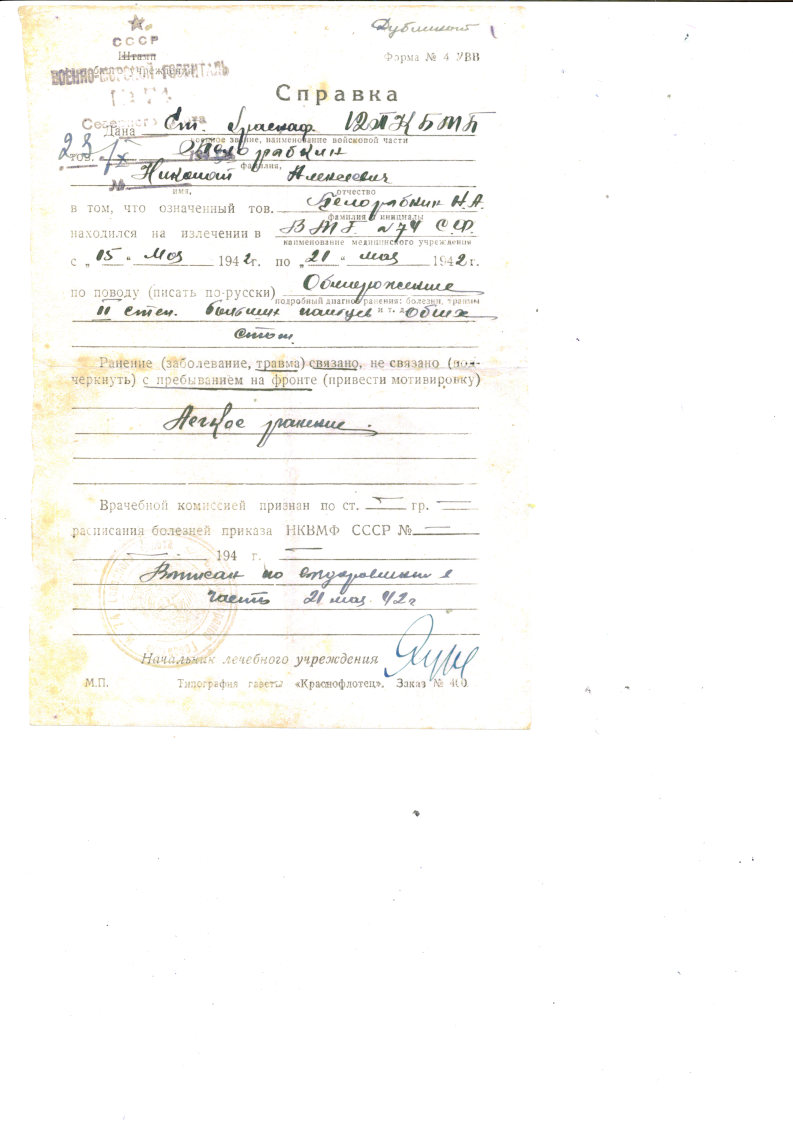 Дубликат
СССР
Штамп
Форма № 4 УВВ
лечебного учреждения
ВОЕННО-МОРСКОЙ ГОСПИТАЛЬ
Справка
Северного флота
Дана Ст. Краснаф. 12ТКБМП
военное звание, наименование войсковой части
23/IX
тов. Белорябкин
фамилия,
Николай Алексеевич
№
имя, отчество
в том, что означенный тов. Белорябкин Н.А.
фамилия и инициалы
находился на излечении в ВМГ. №74 С.Ф.
наименование медицинского учреждения
с „15" мая 1942г. по „21" мая 1942г.
по поводу (писать по-русски) Обморожение
подробный диагноз ранения: болезни, травмы
II степ. больших пальцев и т. д. обших
стоп
Ранение (заболевание, травма) связано, не связано (под-
черкнуть) с пребыванием на фронте (привести мотивировку)
Легкое ранение.
Врачебной комиссией признан по ст. — гр. —
расписания болезней приказа НКВМФ СССР № —
— 194 г. —
Выписан по выздоровлении в
часть 21 мая 42г
Начальник лечебного учреждения
М.П. Типография газеты «Краснофлотец». Заказ № 400